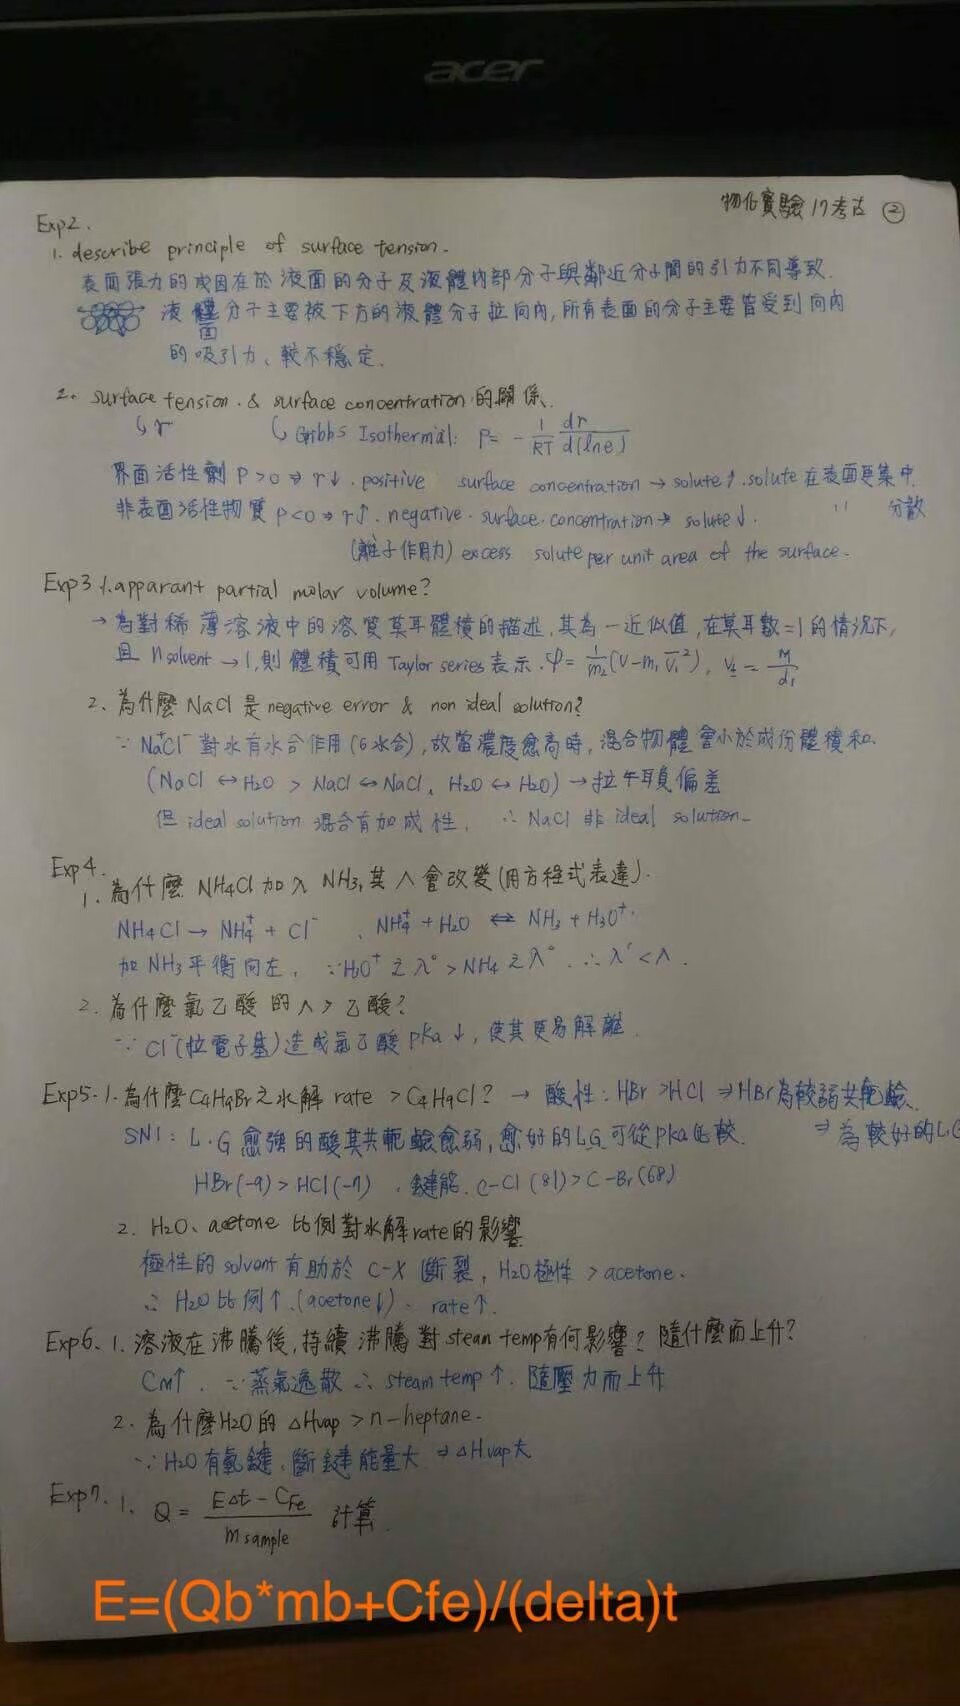 acer
物化實驗 17考古 ②
Exp2.
1. describe principle of surface tension.
表面張力的成因在於液面的分子及液體內部分子與鄰近分子間的引力不同導致.
液面分子主要被下方的液體分子拉向內,所有表面的分子主要皆受到向內
的吸引力、較不穩定.
2. surface tension. & surface concentration 的關係.
↳ r ↳ Gibbs Isothermal: P= - 1/RT dr/d(lne)
界面活性劑 P>0 ⇒ r↓. positive surface concentration → solute↑. solute在表面更集中.
非表面活性物質 P<0 ⇒ r↑. negative. surface. concentration → solute↓. 〃 分散
(離子作用力) excess solute per unit area of the surface.
Exp3 1. apparant partial molar volume?
→ 為對稀薄溶液中的溶質莫耳體積的描述,其為一近似值,在莫耳數=1的情況下,
且 nsolvent → 1,則體積可用Taylor series表示. φ= 1/m₂(V-m₁V̄₁²), V₁ = M/d₁
2. 為什麼NaCl是negative error & non ideal solution?
∵ Na⁺Cl⁻對水有水合作用(6水合),故當濃度愈高時,混合物體會小於成份體積和.
(NaCl ↔ H₂O > NaCl ↔ NaCl, H₂O ↔ H₂O) → 拉午耳負偏差
但 ideal solution 混合有加成性, ∴ NaCl 非 ideal solution.
Exp4.
1. 為什麼 NH4Cl 加入 NH3,其 Λ 會改變(用方程式表達).
NH4Cl → NH4⁺ + Cl⁻ 、NH4⁺ + H2O ⇔ NH3 + H3O⁺.
加NH3平衡向左, ∵ H3O⁺之λ° > NH4之λ°. ∴ Λ' < Λ.
2. 為什麼氯乙酸的Λ > 乙酸?
∵ Cl⁻(拉電子基)造成氯乙酸 pKa↓, 使其更易解離.
Exp5. 1. 為什麼C4H9Br之水解 rate > C4H9Cl? → 酸性: HBr>HCl ⇒ HBr為較弱共軛鹼.
SN1: L.G 愈強的酸其共軛鹼愈弱,愈好的L.G.可從pka比較. ⇒ 為較好的L.G
HBr(-9) > HCl(-7) . 鍵能. C-Cl (81) > C-Br(68)
2. H2O、acetone 比例對水解rate的影響.
極性的 solvent 有助於 C-X 斷裂, H2O極性 > acetone.
∴ H2O比例↑.(acetone↓). rate↑.
Exp6. 1. 溶液在沸騰後,持續沸騰對 steam temp有何影響? 隨什麼而上升?
Cm↑. ∵蒸氣逸散 ∴ steam temp↑. 隨壓力而上升
2. 為什麼H2O的 ΔHvap > n-heptane.
∵ H2O有氫鍵,斷鍵能量大 ⇒ ΔHvap大
Exp7. 1. Q = EΔt - CFe / m sample 計算.
E=(Qb*mb+Cfe)/(delta)t